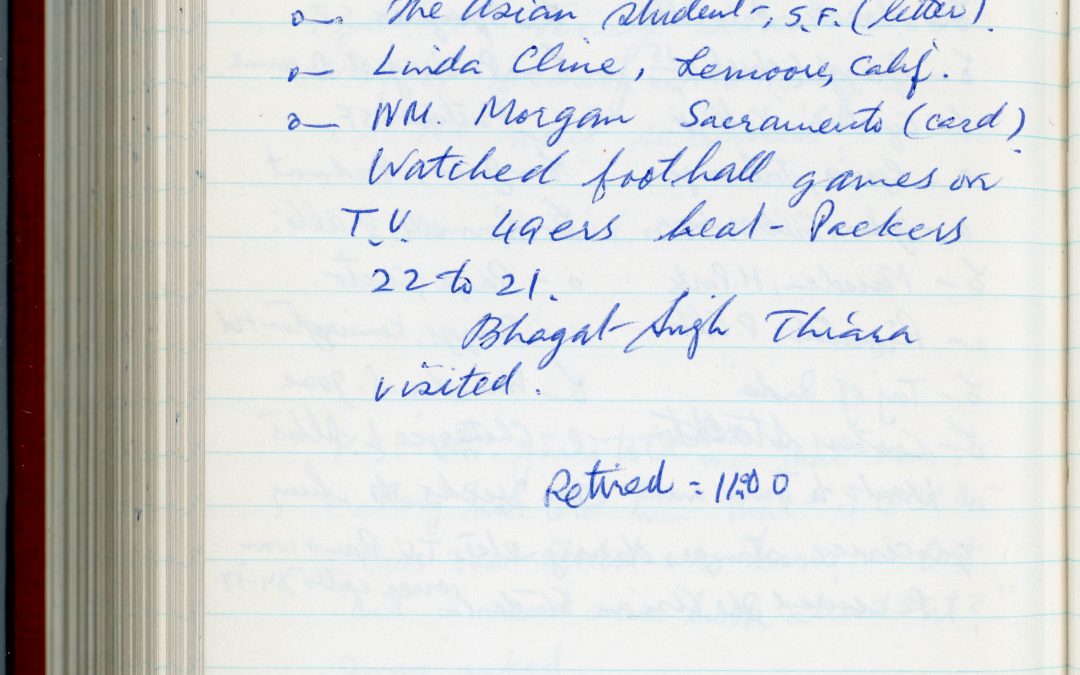 o— The Asian Student, S.F. (letter)
o— Linda Cline, Lemoore, Calif.
o— NM. Morgan Sacramento (card)
Watched football games on
T.V. 49ers beat Packers
22 to 21.
Bhagat Singh Thiara
visited.
Retired = 11:00